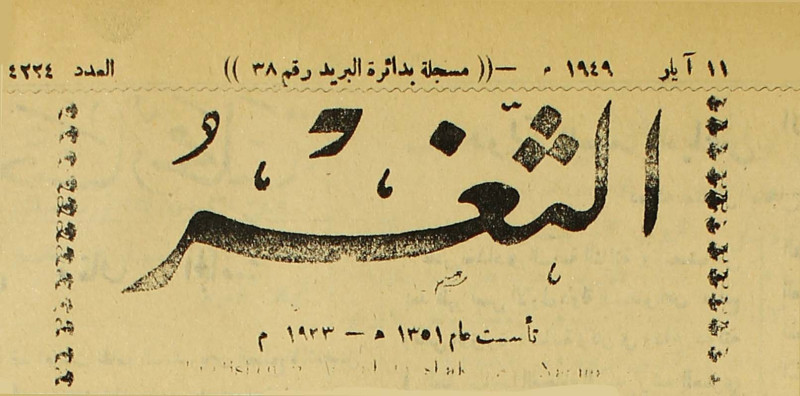 ١١ آيار ١٩٤٩ م — (( مسجلة بدائرة البريد رقم ٣٨ )) العدد ٤٢٢٤
الثغر
تأسست عام ١٣٥١ ه — ١٩٢٣ م